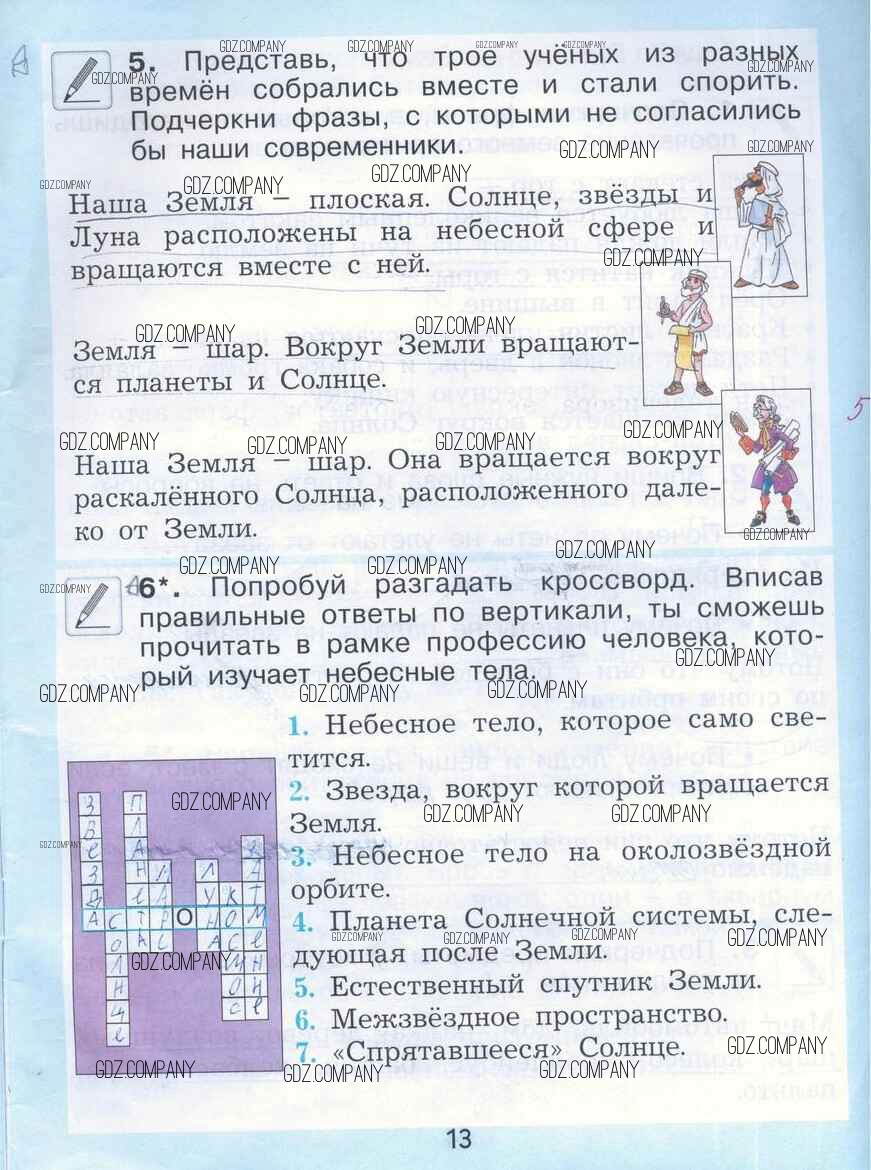 5. Представь, что трое учёных из разных
времён собрались вместе и стали спорить.
Подчеркни фразы, с которыми не согласились
бы наши современники.
Наша Земля – плоская. Солнце, звёзды и
Луна расположены на небесной сфере и
вращаются вместе с ней.
Земля – шар. Вокруг Земли вращают-
ся планеты и Солнце.
5
Наша Земля – шар. Она вращается вокруг
раскалённого Солнца, расположенного дале-
ко от Земли.
6*. Попробуй разгадать кроссворд. Вписав
правильные ответы по вертикали, ты сможешь
прочитать в рамке профессию человека, кото-
рый изучает небесные тела.
1. Небесное тело, которое само све-
тится.
2. Звезда, вокруг которой вращается
Земля.
3. Небесное тело на околозвёздной
орбите.
4. Планета Солнечной системы, сле-
дующая после Земли.
5. Естественный спутник Земли.
6. Межзвёздное пространство.
7. «Спрятавшееся» Солнце.
АСТРОНОМ
13
GDZ.COMPANY